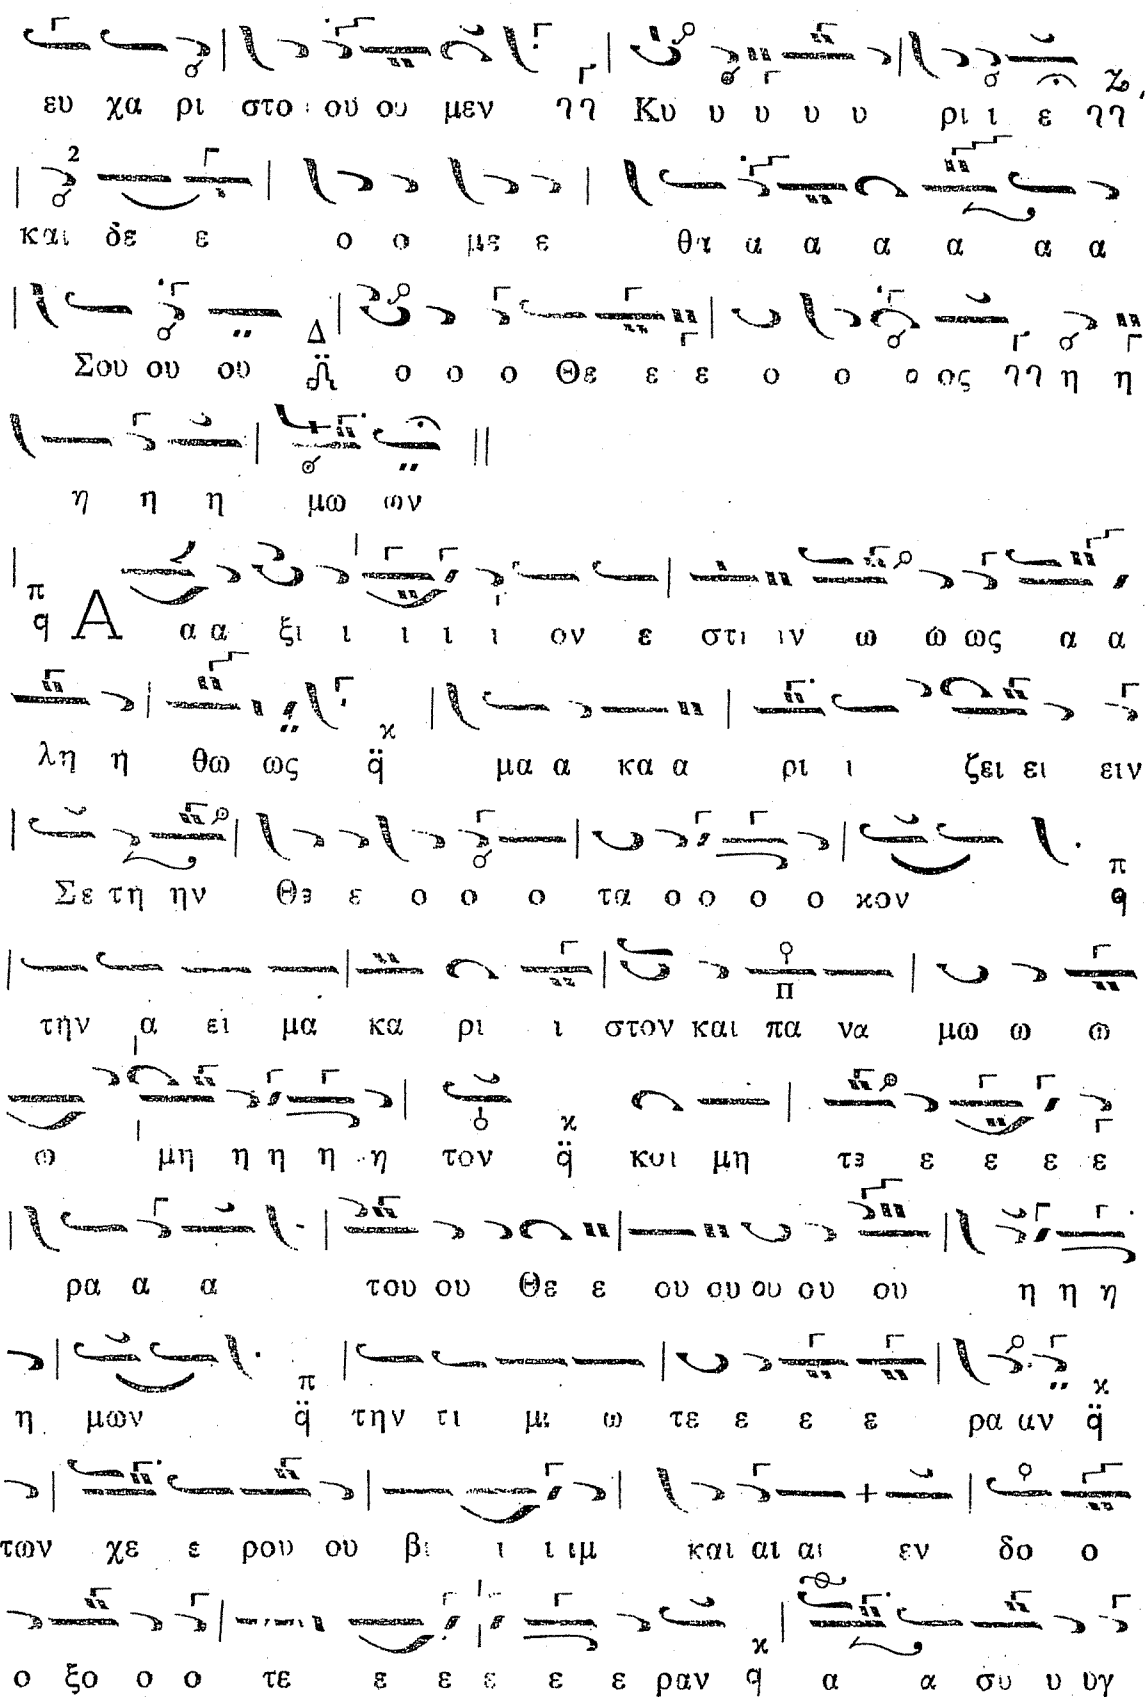 ευ χα ρι στο ου ου μεν γγ Κυ υ υ υ υ ρι ι ε γγ
και δε ε ο ο με ε θα α α α α α α
Σου ου ου Δ ο ο ο Θε ε ε ο ο ο ος γγ η η
η η η μω ων
π q Α α α ξι ι ι ι ι ον ε στι ιν ω ω ως α α
λη η θω ως q μα α κα α ρι ι ζει ει ειν
Σε τη ην Θε ε ο ο ο τα ο ο ο ο κον q
την α ει μα κα ρι ι στον και πα να μω ω ω
ω μη η η η η τον q και μη τε ε ε ε ε
ρα α α του ου Θε ε ου ου ου ου ου η η η
η μων q την τι μι ω τε ε ε ε ρα αν q
των χε ε ρου ου βι ι ι ιμ και αι αι εν δο ο
ο ξο ο ο τε ε ε ε ε ε ραν q α α συ υ υγ